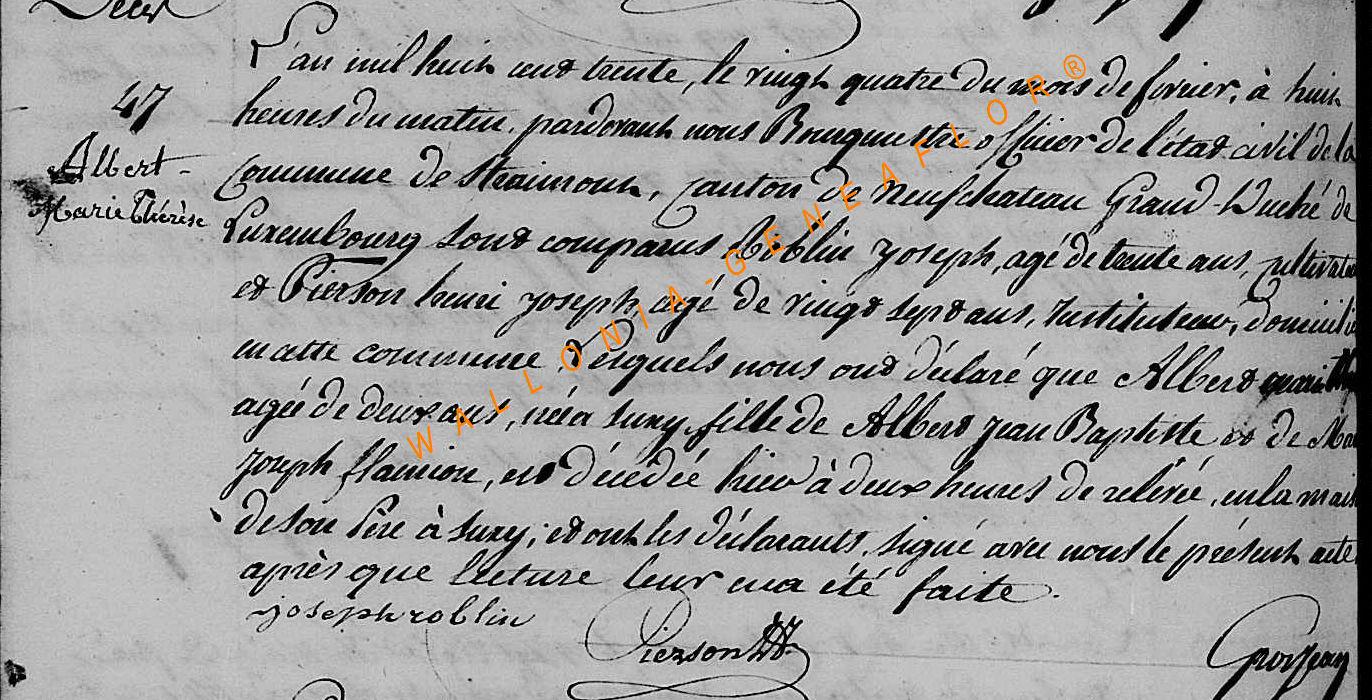 47
Albert
Marie Thérèse
L'an mil huit cent trente, le vingt quatre du mois de fevrier, à huit
heures du matin, pardevant nous Bourguestre officier de l'état civil de la
commune de Straimont, canton de Neufchateau Grand-Duché de
Luxembourg sont comparus Roblin Joseph, agé de trente ans, cultivateu
et Pierson henri joseph, agé de vingt sept ans, Instituteur, domicilié
en cette commune, Lesquels nous ont déclaré que Albert marie
agée de deux ans, née à suxy, fille de Albert Jean Baptiste et de Ma
Joseph flamion, est décédée hier à deux heures de relévée, en la mais
de son Père à suxy; et ont les déclarants, signé avec nous le présent acte
après que lecture leur en a été faite.
joseph roblin
Pierson
Grosjean
WALLONIA-GENEAFLOR®